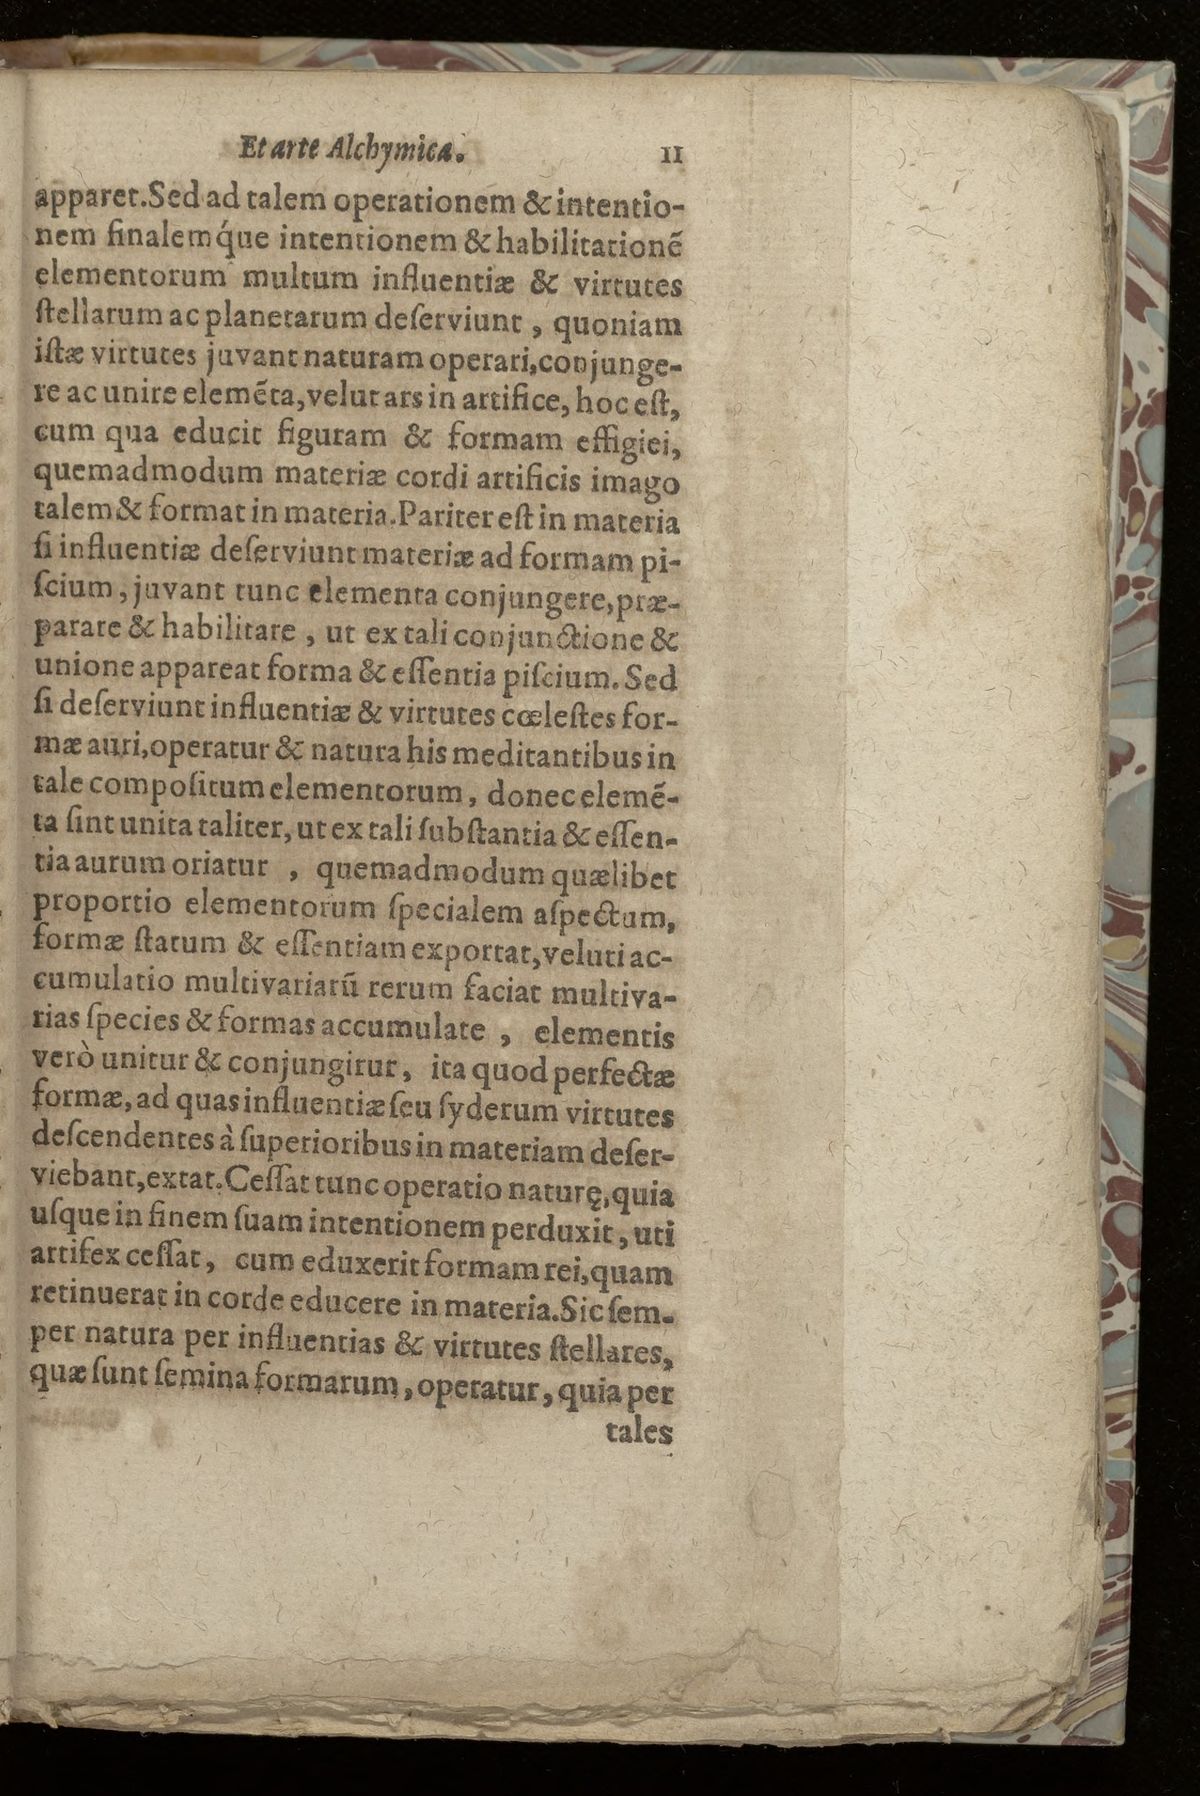 Et arte Alchymica. 11
apparet. Sed ad talem operationem & intentio-
nem finalemq́ue intentionem & habilitationẽ
elementorum multum influentiæ & virtutes
ſtellarum ac planetarum deſerviunt, quoniam
iſtæ virtutes juvant naturam operari, conjunge-
re ac unire elemẽta, velut ars in artifice, hoc eſt,
cum qua educit figuram & formam effigiei,
quemadmodum materiæ cordi artificis imago
talem & format in materia. Pariter eſt in materia
ſi influentiæ deſerviunt materiæ ad formam pi-
ſcium, juvant tunc elementa conjungere, præ-
parare & habilitare, ut ex tali conjunctione &
unione appareat forma & eſſentia piſcium. Sed
ſi deſerviunt influentiæ & virtutes cœleſtes for-
mæ auri, operatur & natura his meditantibus in
tale compoſitum elementorum, donec elemẽ-
ta ſint unita taliter, ut ex tali ſubſtantia & eſſen-
tia aurum oriatur, quemadmodum quælibet
proportio elementorum ſpecialem aſpectum,
formæ ſtatum & eſſentiam exportat, veluti ac-
cumulatio multivariarũ rerum faciat multiva-
rias ſpecies & formas accumulate, elementis
verò unitur & conjungitur, ita quod perfectæ
formæ, ad quas influentiæ ſeu ſyderum virtutes
deſcendentes à ſuperioribus in materiam deſer-
viebant, extat. Ceſſat tunc operatio naturę, quia
uſque in finem ſuam intentionem perduxit, uti
artifex ceſſat, cum eduxerit formam rei, quam
retinuerat in corde educere in materia. Sic ſem-
per natura per influentias & virtutes ſtellares,
quæ ſunt ſemina formarum, operatur, quia per
tales